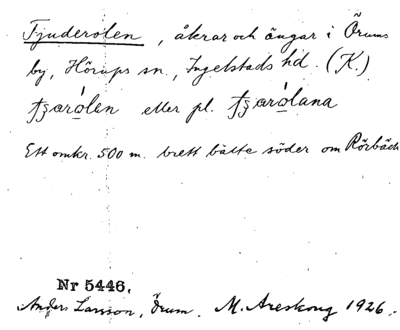 Tjuderolen, åkrar och ängar i Örums
by, Hörups sn., Ingelstads hd. (K.)
eller pl.
Ett omkr. 500 m. brett bälte söder om Rörbäck
Nr 5446.
Anders Larsson, Örum. M. Areskoug 1926.